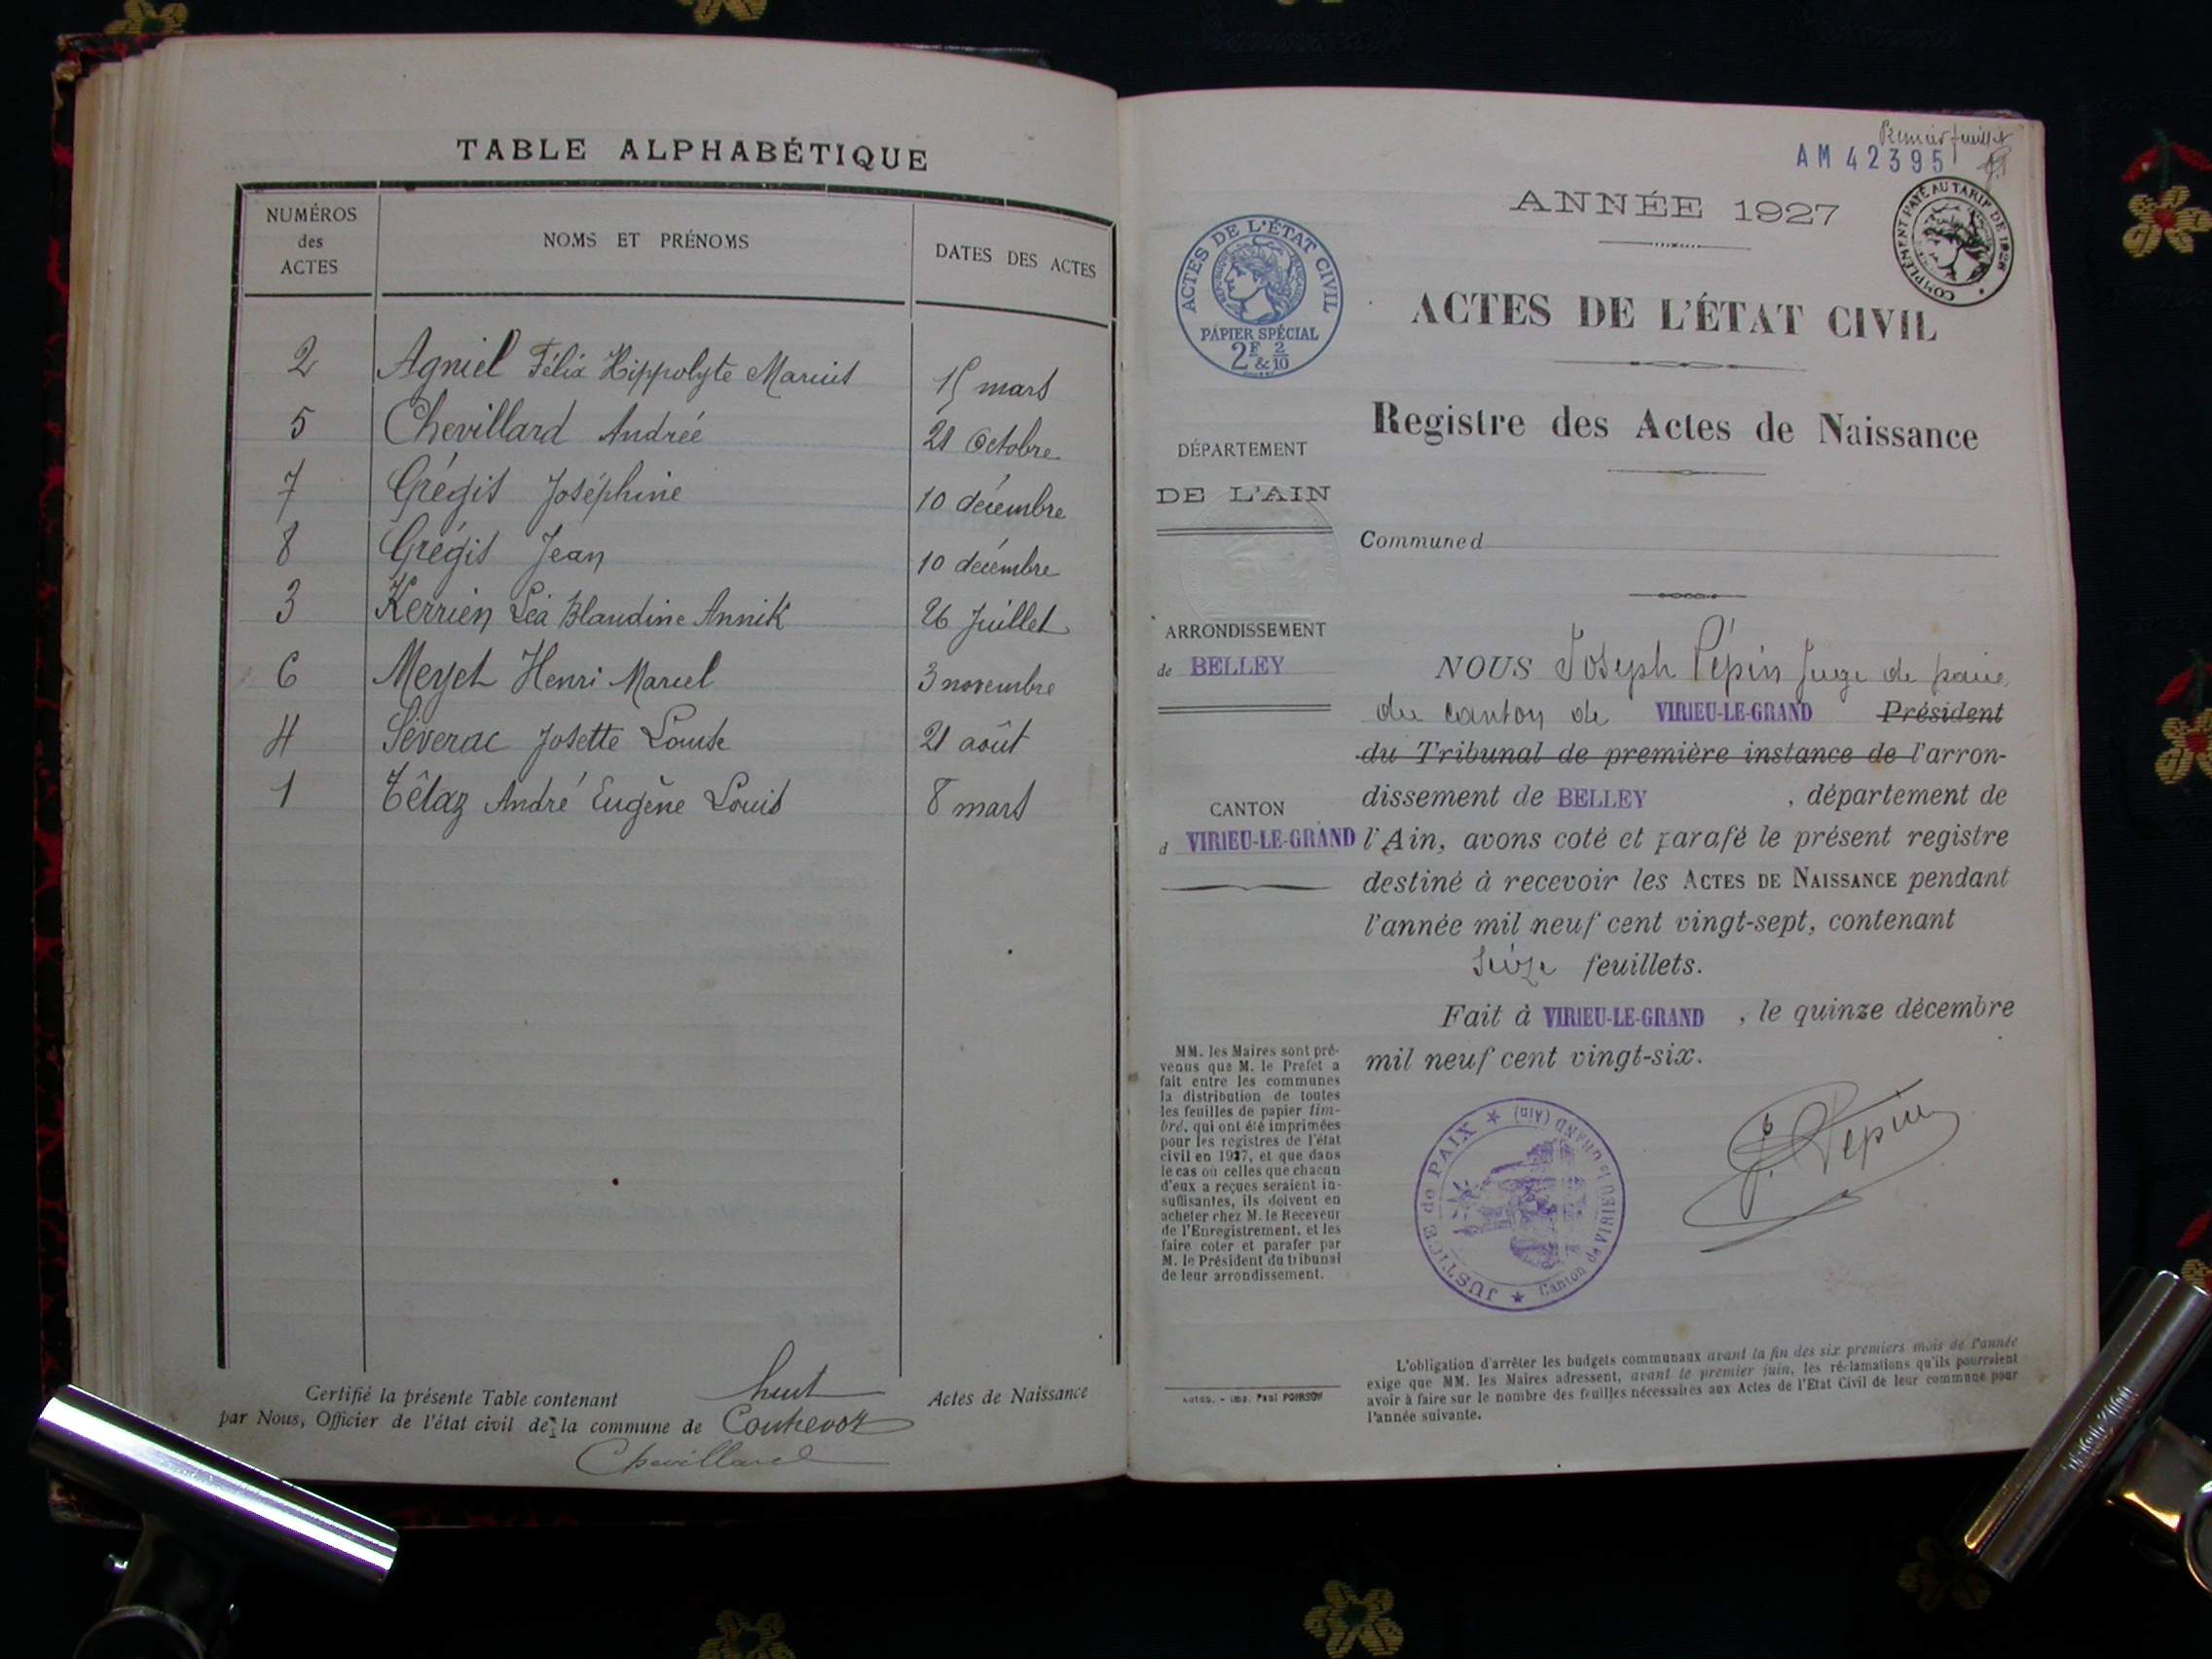 TABLE ALPHABÉTIQUE
NUMÉROS des ACTES
NOMS ET PRÉNOMS
DATES DES ACTES
2 Agniel Félix Hippolyte Marius 15 mars
5 Chevillard Andrée 21 Octobre
7 Grégis Joséphine 10 décembre
8 Grégis Jean 10 décembre
3 Kerrien Léa Blandine Annik 26 Juillet
6 Meyet Henri Marcel 3 novembre
4 Séverac Josette Louise 21 août
1 Têlaz André Eugène Louis 8 mars
Certifié la présente Table contenant huit Actes de Naissance
par Nous, Officier de l'état civil de la commune de Contrevoz
Chevillard
Premier feuillet
AM 42395
COMPLÉMENT PAYÉ AU TARIF DE 1926
ANNÉE 1927
ACTES DE L'ÉTAT CIVIL
RÉPUBLIQUE FRANÇAISE
PAPIER SPÉCIAL
2F & 2/10
ACTES DE L'ÉTAT CIVIL
Registre des Actes de Naissance
DÉPARTEMENT
DE L'AIN
Commune d
ARRONDISSEMENT
de BELLEY
CANTON
d VIRIEU-LE-GRAND
NOUS Joseph Pépin Juge de paix
du canton de VIRIEU-LE-GRAND Président
du Tribunal de première instance de l'arron-
dissement de BELLEY , département de
l'Ain, avons coté et parafé le présent registre
destiné à recevoir les ACTES DE NAISSANCE pendant
l'année mil neuf cent vingt-sept, contenant
Seize feuillets.
Fait à VIRIEU-LE-GRAND , le quinze décembre
mil neuf cent vingt-six.
MM. les Maires sont pré-
venus que M. le Préfet a
fait entre les communes
la distribution de toutes
les feuilles de papier tim-
bré, qui ont été imprimées
pour les registres de l'état
civil en 1927, et que dans
le cas où celles que chacun
d'eux a reçues seraient in-
suffisantes, ils doivent en
acheter chez M. le Receveur
de l'Enregistrement, et les
faire coter et parafer par
M. le Président du tribunal
de leur arrondissement.
JUSTICE de PAIX
Canton de VIRIEU le GRAND (Ain)
J. Pépin
Imp. Paul POIRSON
L'obligation d'arrêter les budgets communaux avant la fin des six premiers mois de l'année
exige que MM. les Maires adressent, avant le premier juin, les réclamations qu'ils pourraient
avoir à faire sur le nombre des feuilles nécessaires aux Actes de l'Etat Civil de leur commune pour
l'année suivante.